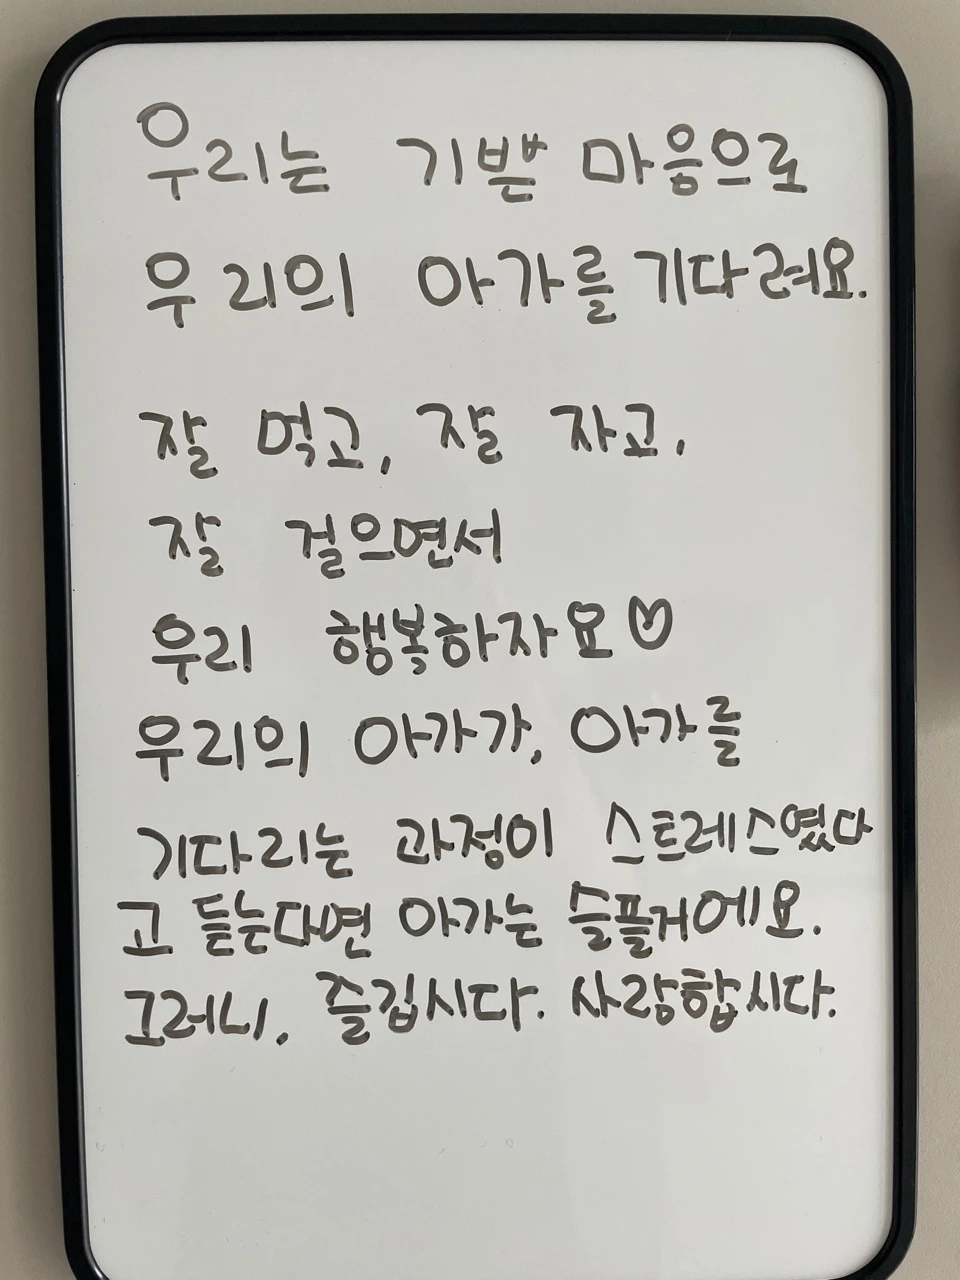 우리는 기쁜 마음으로
우리의 아가를 기다려요.
잘 먹고, 잘 자고,
잘 걸으면서
우리 행복하자요♡
우리의 아가가, 아가를
기다리는 과정이 스트레스였다
고 듣는다면 아가는 슬플거에요.
그러니, 즐깁시다. 사랑합시다.